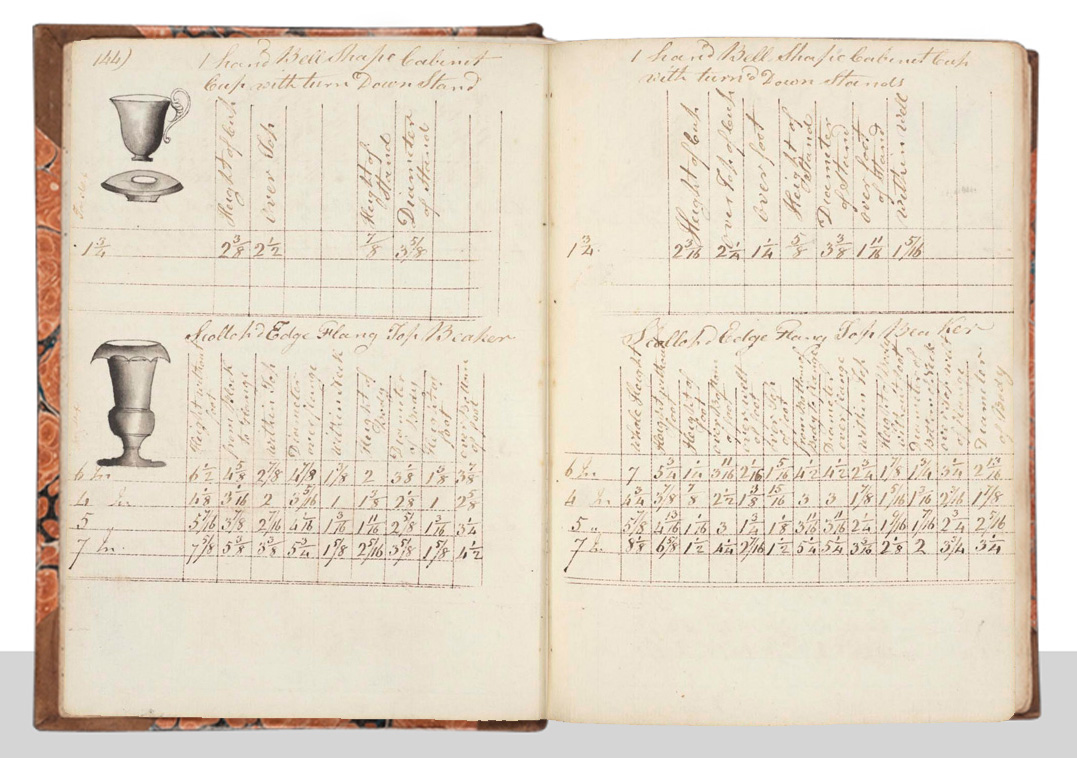 144)
1 hand Bell Shape Cabinet
Cup with turn'd Down Stand
Height of Cup
over Top
Height of
Stand
Diameter
of Stand
1 3/4 2 3/8 2 1/2 7/8 3 5/8
Scollop'd Edge Flang Top Beaker
Height without
foot
from Neck
to flange
within Top
Diameter
over flange
within Neck
Height of
Body
Diameter
of Body
Height of
foot
over Bottom
of foot
6 In 6 1/2 4 5/8 2 7/8 4 7/8 1 7/8 2 3 1/8 1 3/8 3 7/8
4 In 4 1/8 3 1/16 2 3 3/16 1 1 3/8 2 1/8 1 2 5/8
5 " 5 7/16 3 7/8 2 7/16 4 1/16 1 3/16 1 11/16 2 5/8 1 3/16 3 1/4
7 In 7 5/8 5 3/8 3 3/8 5 3/4 1 5/8 2 5/16 3 5/8 1 5/8 4 1/2
1 hand Bell Shape Cabinet Cup
with turn'd Down Stands
Height of Cup
over Top of Cup
over foot
Height of
Stand
Diameter
of Stand
over foot
of Stand
within well
1 3/4 2 3/16 2 1/4 1 1/4 5/8 3 3/8 1 11/16 1 5/16
Scollop'd Edge Flang Top Beaker
Whole Height
Height without
foot
Height of
foot
over Bottom
of foot
over Top
of foot
Diameter
over flange
within Top
Diameter
of Body
6 In 7 5 3/4 3 11/16 2 1/16 1 5/16 4 1/2 4 1/2 2 3/4 1 7/8 1 3/4 3 1/4 2 13/16
4 In 4 3/4 3 7/8 7/8 2 1/2 1 3/8 15/16 3 3 1 7/8 1 5/16 1 3/16 2 3/16 1 7/8
5 " 5 7/8 4 13/16 1 1/16 3 1 3/4 1 1/8 3 11/16 3 11/16 2 1/4 1 9/16 1 7/16 2 3/4 2 5/16
7 In 8 1/8 6 5/8 1 1/2 4 1/4 2 7/16 1 1/2 5 1/4 5 1/4 3 3/16 2 1/8 2 3 3/4 3 1/4